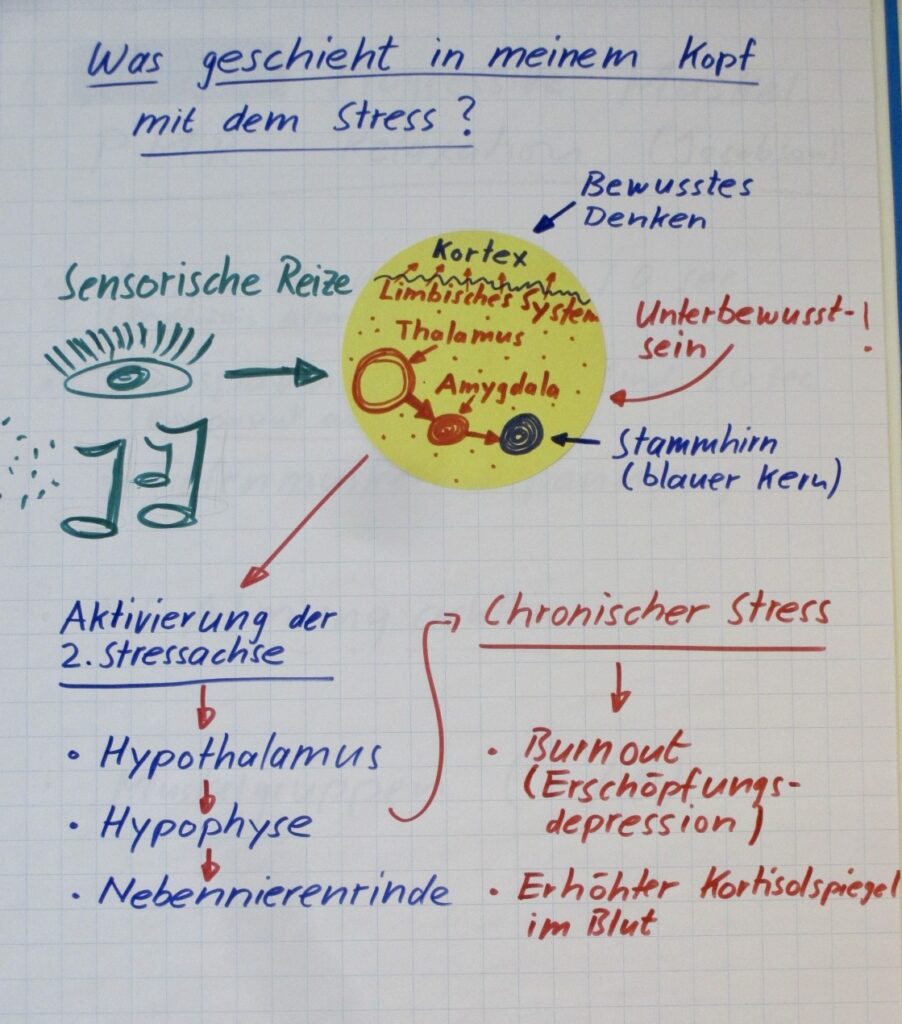 Was geschieht in meinem Kopf
mit dem Stress?
Bewusstes
Denken
Kortex
Sensorische Reize
Limbisches System
Unterbewusst-!
sein
Thalamus
Amygdala
Stammhirn
(blauer Kern)
Aktivierung der
2. Stressachse
• Hypothalamus
• Hypophyse
• Nebennierenrinde
Chronischer Stress
• Burnout
(Erschöpfungs-
depression)
• Erhöhter Kortisolspiegel
im Blut